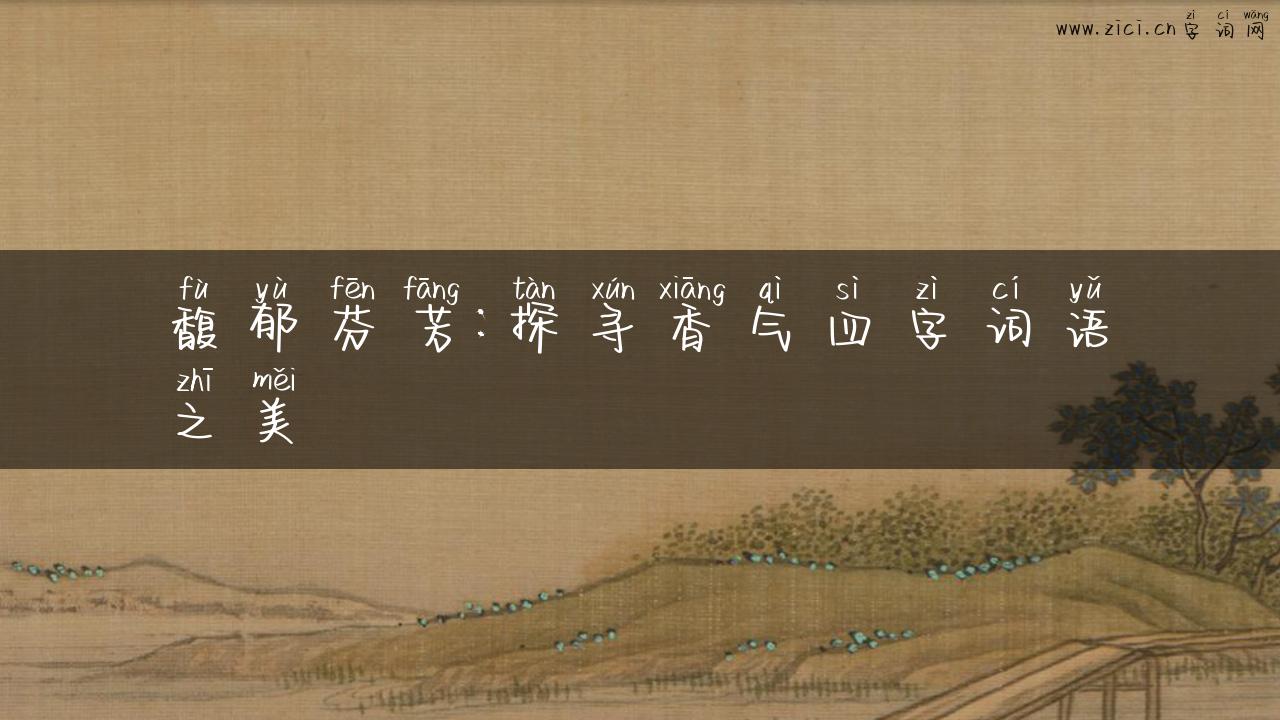 zì cí wǎng
www.zici.cn字词网
fù yù fēn fāng tàn xún xiāng qì sì zì cí yǔ
馥郁芬芳:探寻香气四字词语
zhī měi
之美